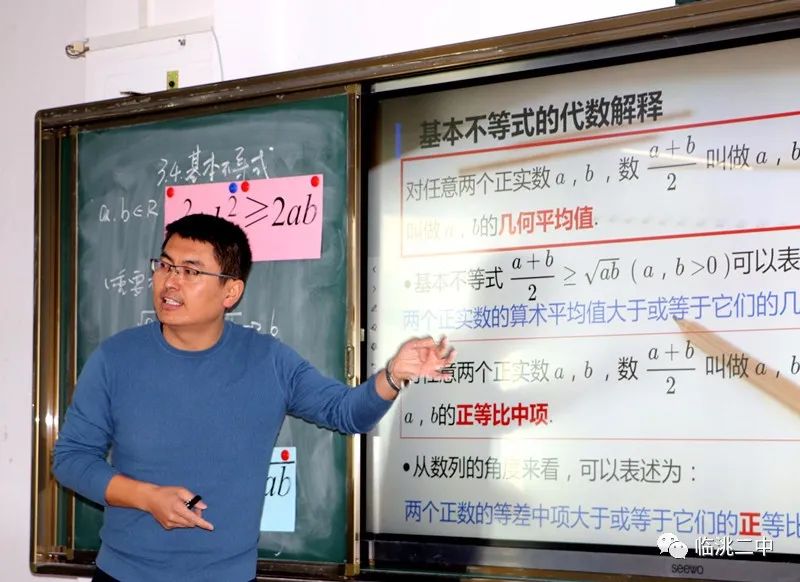 3.4基本不等式
a.b∈R
2≥2ab
(重要
ab
基本不等式的代数解释
对任意两个正实数a，b，数 (a+b)/2 叫做a，b
叫做a，b的几何平均值.
•基本不等式 (a+b)/2 ≥ √ab (a，b>0)可以表
两个正实数的算术平均值大于或等于它们的几
对任意两个正实数a，b，数 (a+b)/2 叫做a，b
a，b的正等比中项.
•从数列的角度来看，可以表述为：
两个正数的等差中项大于或等于它们的正等比
seewo
临洮二中